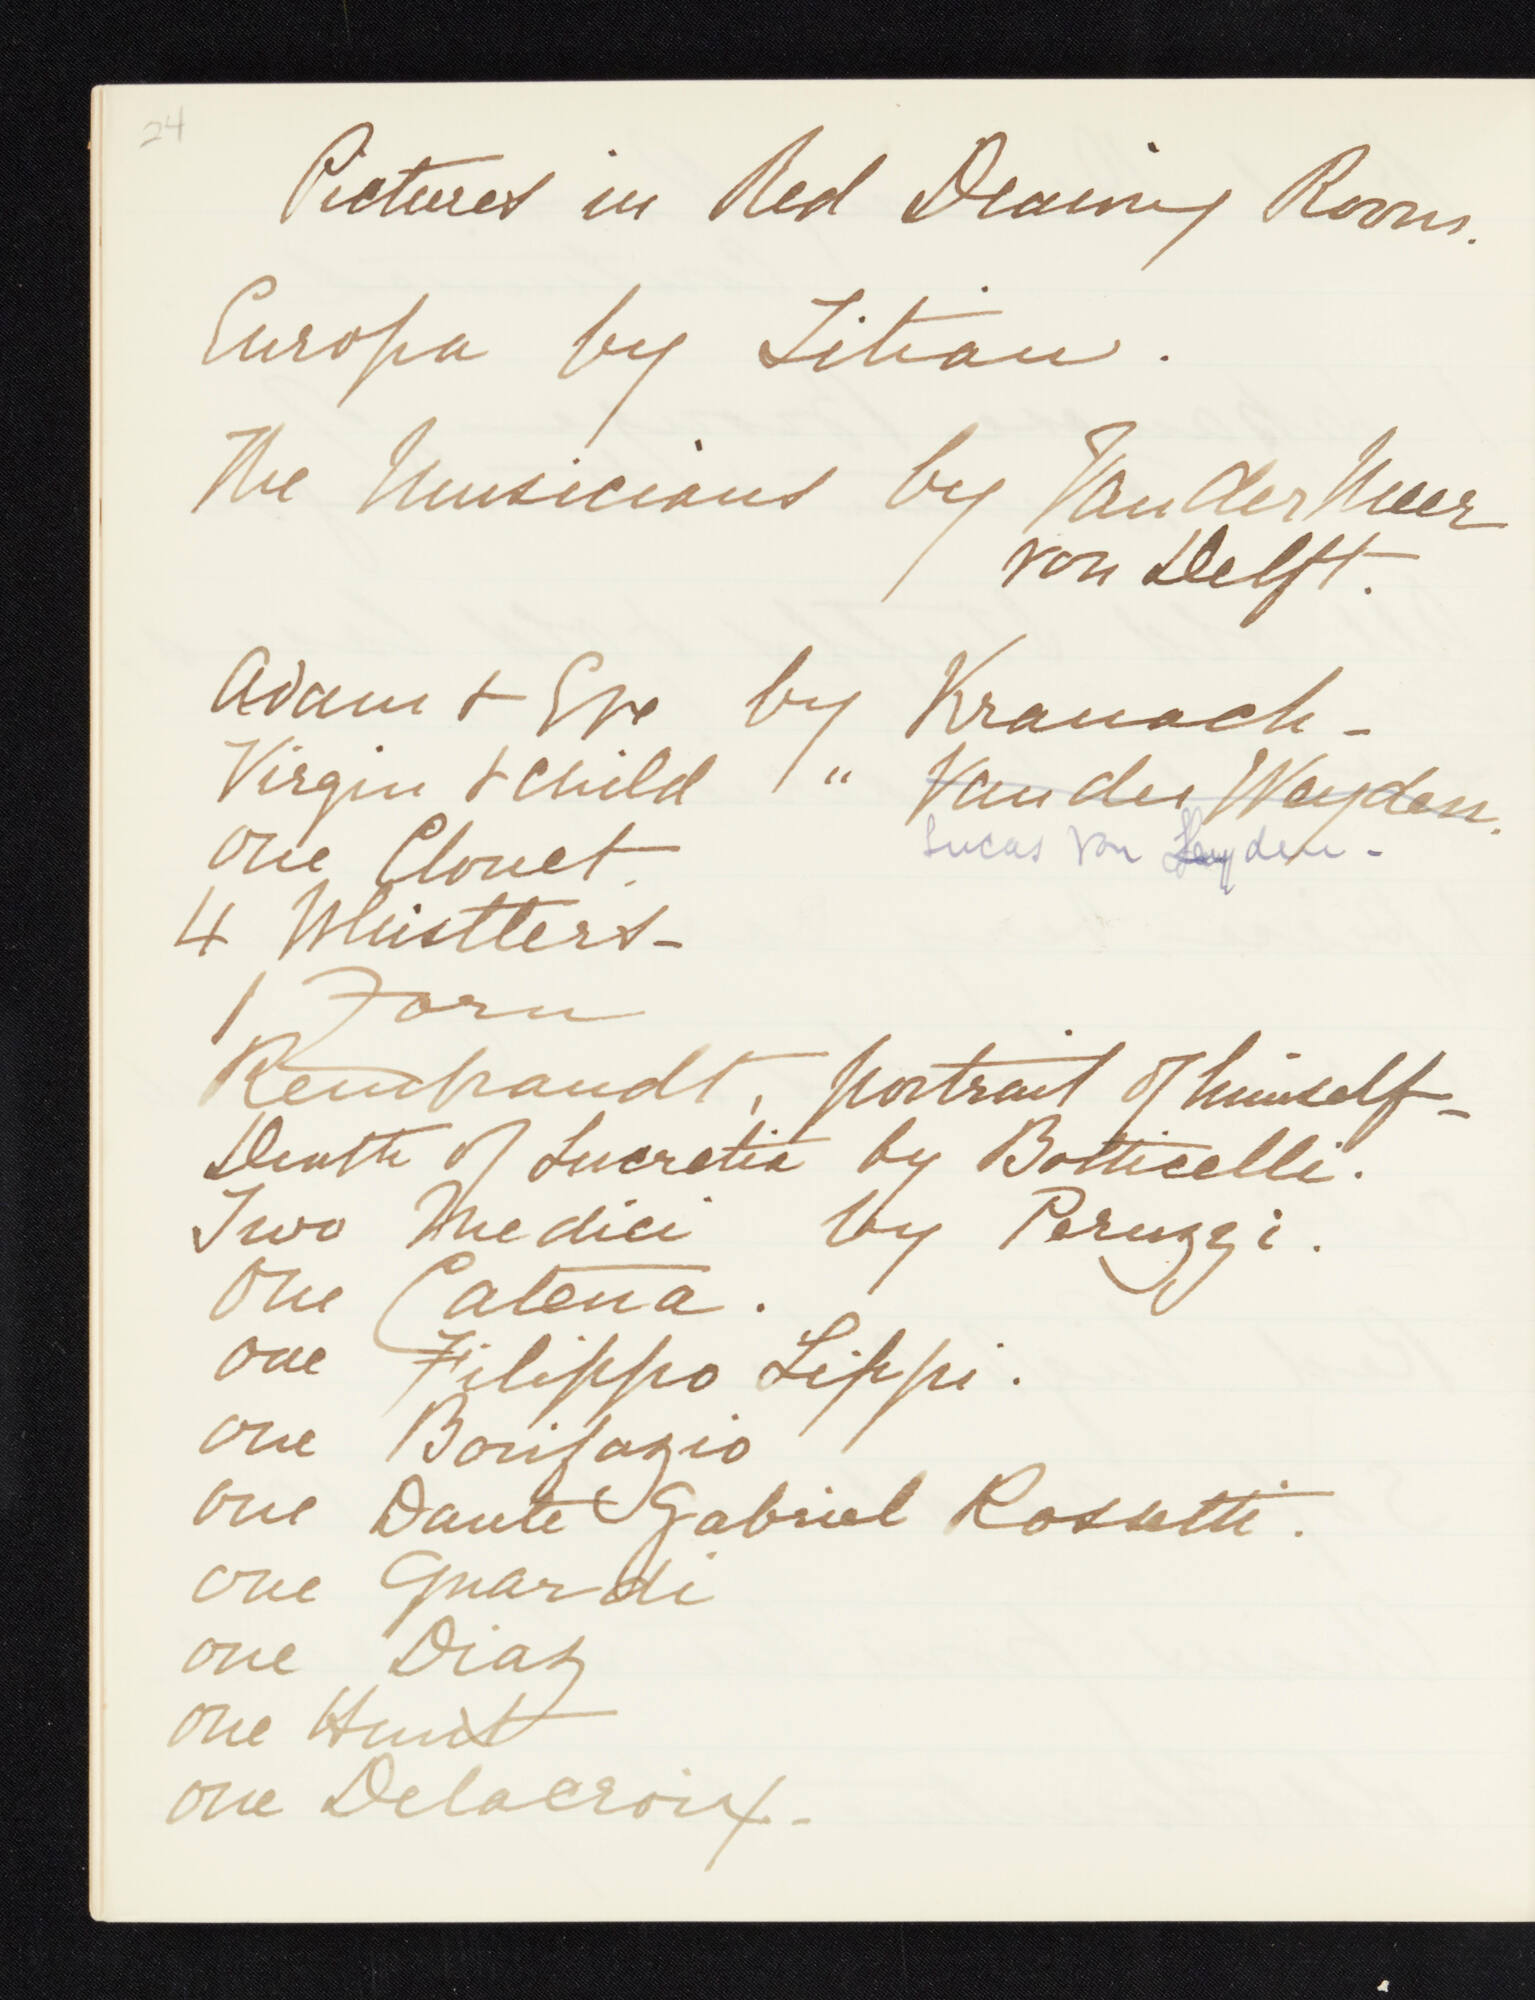 24
Pictures in Red Drawing Room.
Europa by Titian.
The Musicians by Van der Meer
von Delft.
Adam & Eve by Kranach -
Virgin & Child " Van der Weyden.
Lucas von Leyden -
one Clouet.
4 Whistlers -
1 Zorn
Rembrandt, portrait of himself -
Death of Lucretia by Botticelli.
Two Medici by Peruzzi.
One Catena.
one Filippo Lippi.
one Bonifazio
one Dante Gabriel Rossetti.
one Guardi
one Diaz
one Hunt
one Delacroix -